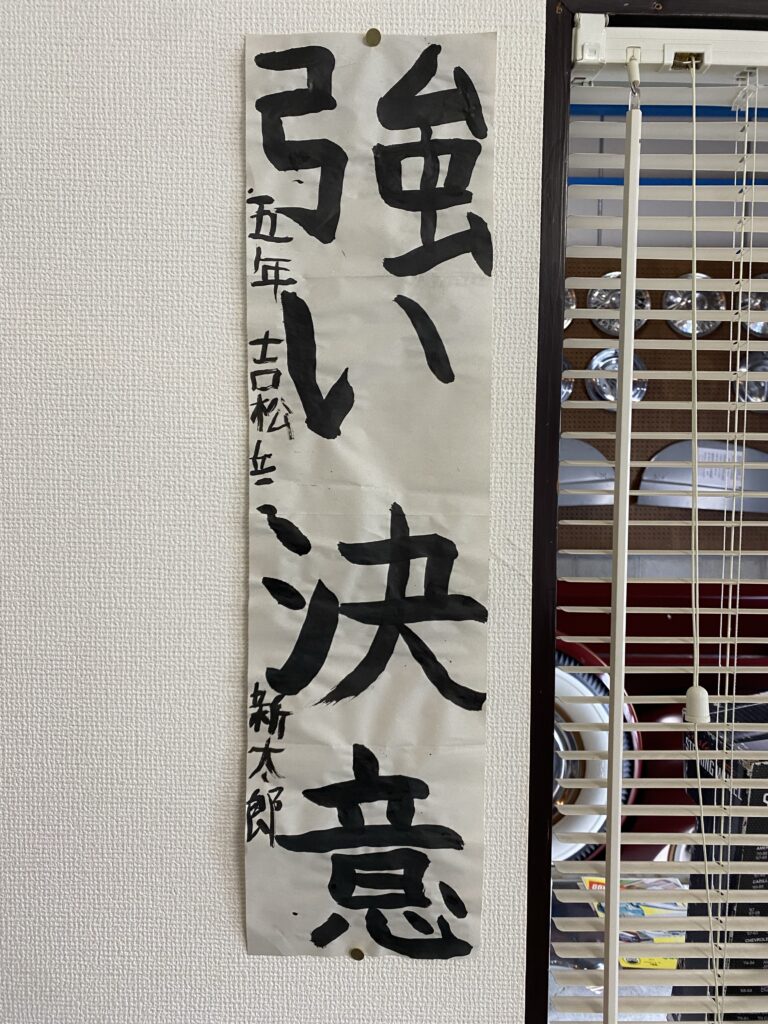 強い決意
五年 吉松 兵新太郎
CHEVROLET